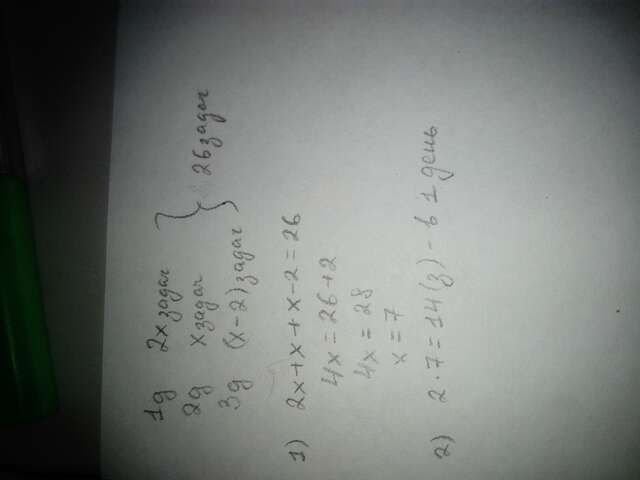 1д 2x задач
2д x задач
3д (x-2) задач
} 26 задач
1) 2x+x+x-2=26
4x=26+2
4x=28
x=7
2) 2·7=14(з)-в 1 день